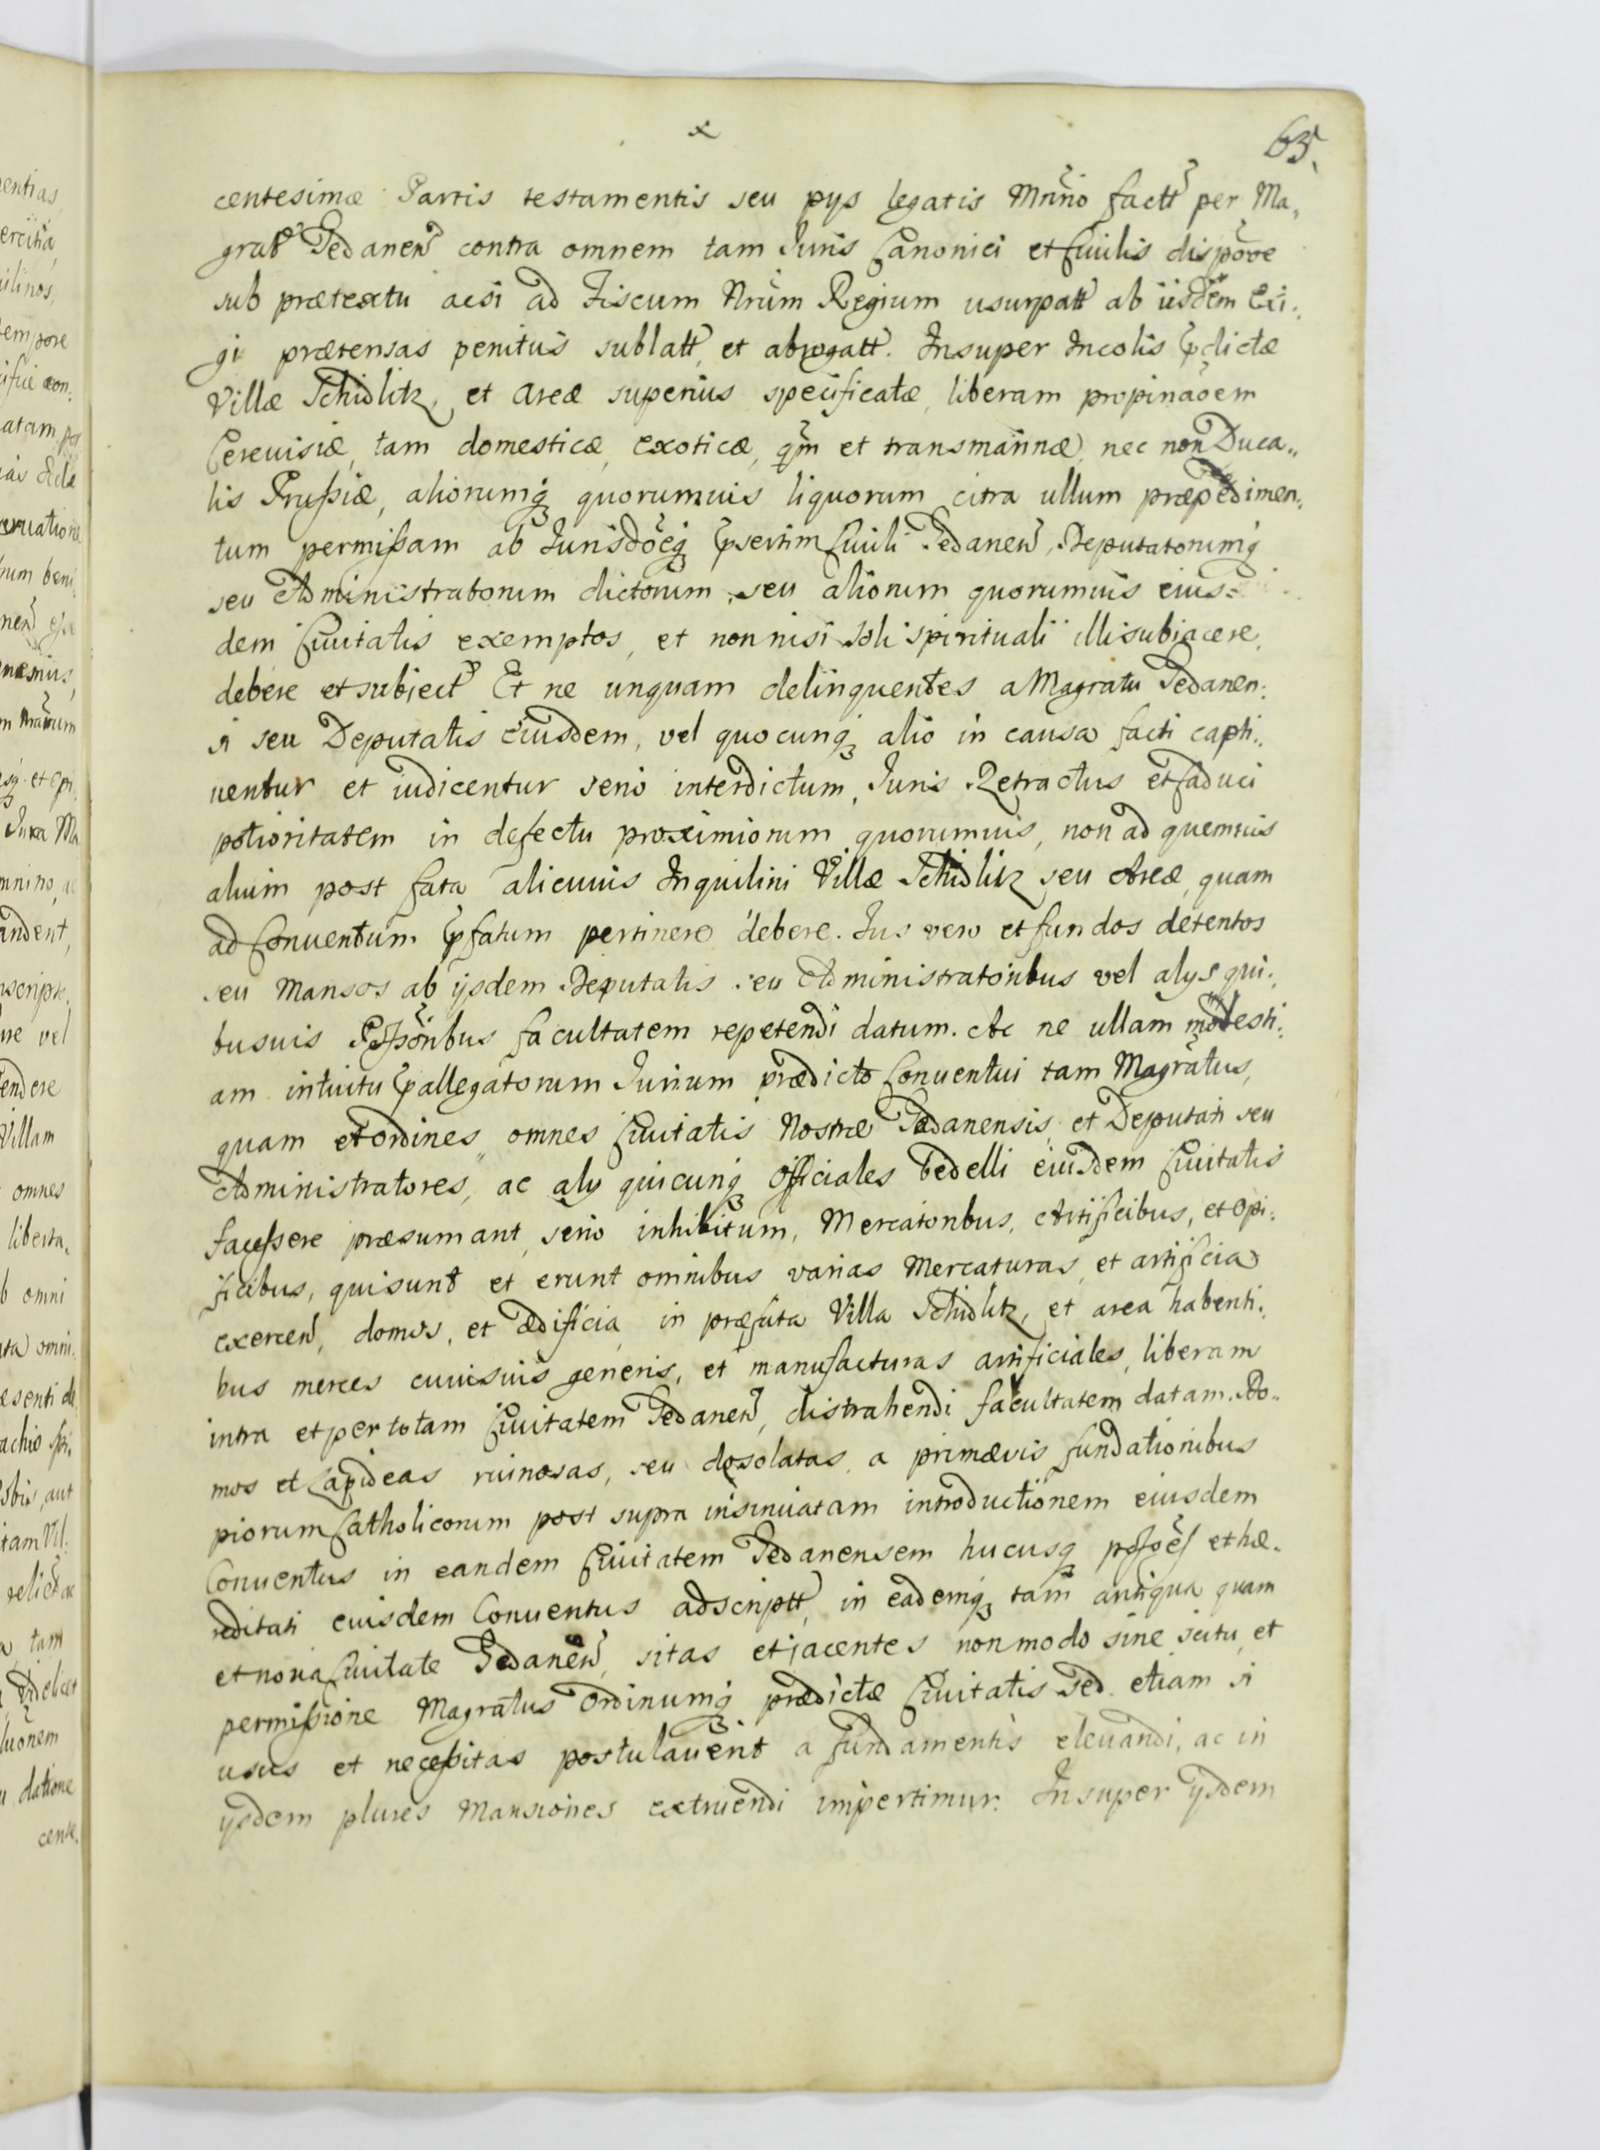 x
63.
centesimæ Partis testamentis seu pys legatis Mnrio factt per Ma,
grat Gedanen contra omnem tam Juris Canonici et Ciuilis dispõoe
sub prætextu acsi ad Fiscum Nrum Regium usurpatt ab iisdem Exi:
gi prætensas penitus sublatt, et abrogatt. Insuper Incolis prdictæ
Villæ Schidlitz, et Areæ superius specificatæ, liberam propinaõem
Cereuisiæ, tam domesticæ, exoticæ, qm et transmarinæ, nec non Duca„
lis Prußiæ, aliorumq quorumuis liquorum citra ullum præpedimen„
tum permißam ab Jurisdõeq prsertim Ciuili Gedanen, Deputatorumq
seu Administratorum dictorum, seu aliorum quorumuis eius=
dem Ciuitatis exemptos, et non nisi soli spirituali illi subiacere,
debere et subiect Et ne unquam delinquentes a Magratu Gedanen:
si seu Deputatis Eiusdem, vel quocunq alio in causa facti capti„
uentur et iudicentur serio interdictum, Juris Retractus et Caduci
potioritatem in defectu proximiorum quorumuis, non ad quemuis
alium post fata alicuius Inquilini Villæ Schidlitz seu Areæ, quam
ad Conuentum prfatum pertinere debere. Jus vero et fundos detentos
seu Mansos ab ijsdem Deputatis seu Administratoribus vel alys qui„
busuis Posßoribus facultatem repetendi datum. Ac ne ullam molesti„
am intuitu prallegatorum Jurium prædicto Conuentui tam Magratus,
quam et Ordines omnes Ciuitatis Nostræ Gedanensis, et Deputati seu
Administratores, ac aly quicunq Officiales Bedelli eiusdem Ciuitatis
faceßere præsumant, serio inhibitum, Mercatoribus, Artificibus, et Opi„
ficibus, qui sunt et erunt omnibus varias Mercaturas, et artificia
exercen, domos, et ædificia, in præfata Villa Schidlitz, et area habenti„
bus merces cuiusuis generis, et manufacturas artificiales, liberam
intra et per totam Ciuitatem Gedanen, distrahendi facultatem datam. Do„
mos et Lapideas ruinosas, seu desolatas, a primævis fundationibus
piorum Catholicorum post supra insinuatam introductionem eiusdem
Conuentus in eandem Ciuitatem Gedanensem hucusq poßoes et hæ„
reditati eiusdem Conuentus adscriptt, in eademq tam antiqua quam
et noua Ciuitate Gedanen, sitas et jacentes non modo sine scitu, et
permißione Magratus Ordinumq prædictæ Ciuitatis sed etiam si
usus et neceßitas postulauerit a fundamentis eleuandi, ac in
ysdem plures Mansiones extruendi impertimur. Insuper ysdem